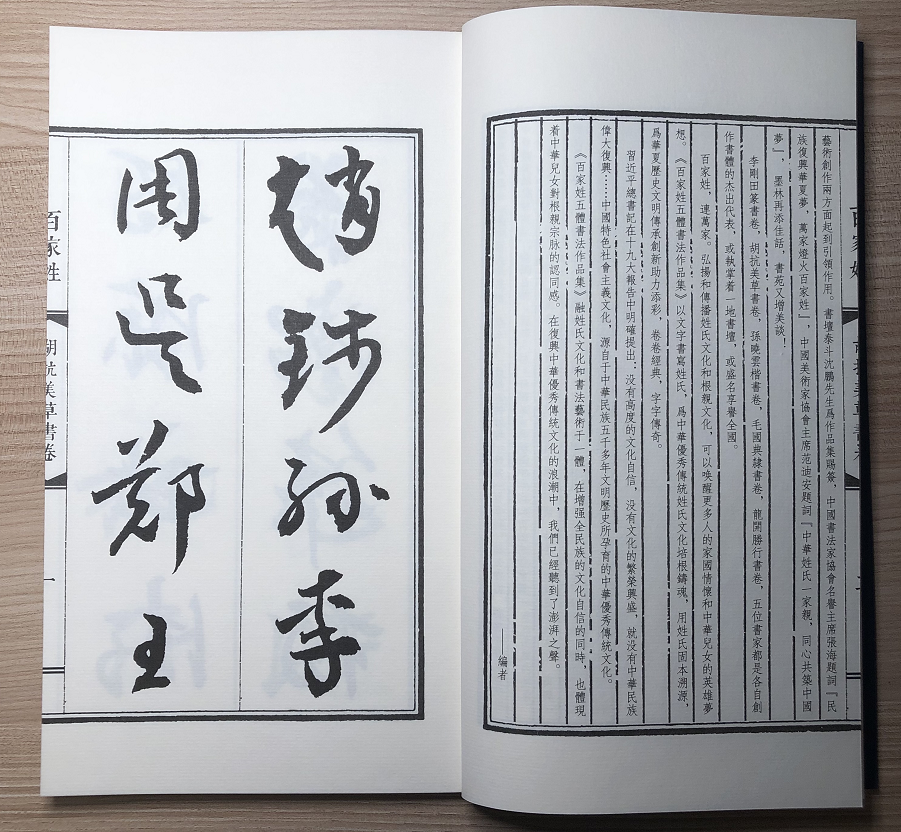 藝術創作兩方面起到引領作用。書壇泰斗沈鵬先生爲作品集賜簽，中國書法家協會名譽主席張海題詞『民
族復興華夏夢，萬家燈火百家姓』，中國美術家協會主席范迪安題詞『中華姓氏一家親，同心共築中國
夢』，墨林再添佳話，書苑又增美談！
李剛田篆書卷，胡抗美草書卷，孫曉雲楷書卷，毛國典隸書卷，龍開勝行書卷，五位書家都是各自創
作書體的杰出代表，或執掌着一地書壇，或盛名享譽全國。
百家姓，連萬家。弘揚和傳播姓氏文化和根親文化，可以唤醒更多人的家國情懷和中華兒女的英雄夢
想。《百家姓五體書法作品集》以文字書寫姓氏，爲中華優秀傳統姓氏文化培根鑄魂，用姓氏固本溯源，
爲華夏歷史文明傳承創新助力添彩，卷卷經典，字字傳奇。
習近平總書記在十九大報告中明確提出：没有高度的文化自信，没有文化的繁榮興盛，就没有中華民族
偉大復興……中國特色社會主義文化，源自于中華民族五千多年文明歷史所孕育的中華優秀傳統文化。
《百家姓五體書法作品集》融姓氏文化和書法藝術于一體，在增强全民族的文化自信的同時，也體現
着中華兒女對根親宗脉的認同感。在復興中華優秀傳統文化的浪潮中，我們已經聽到了澎湃之聲。
——編者
趙錢孫李
周吴鄭王
百家姓
胡抗美草書卷
一